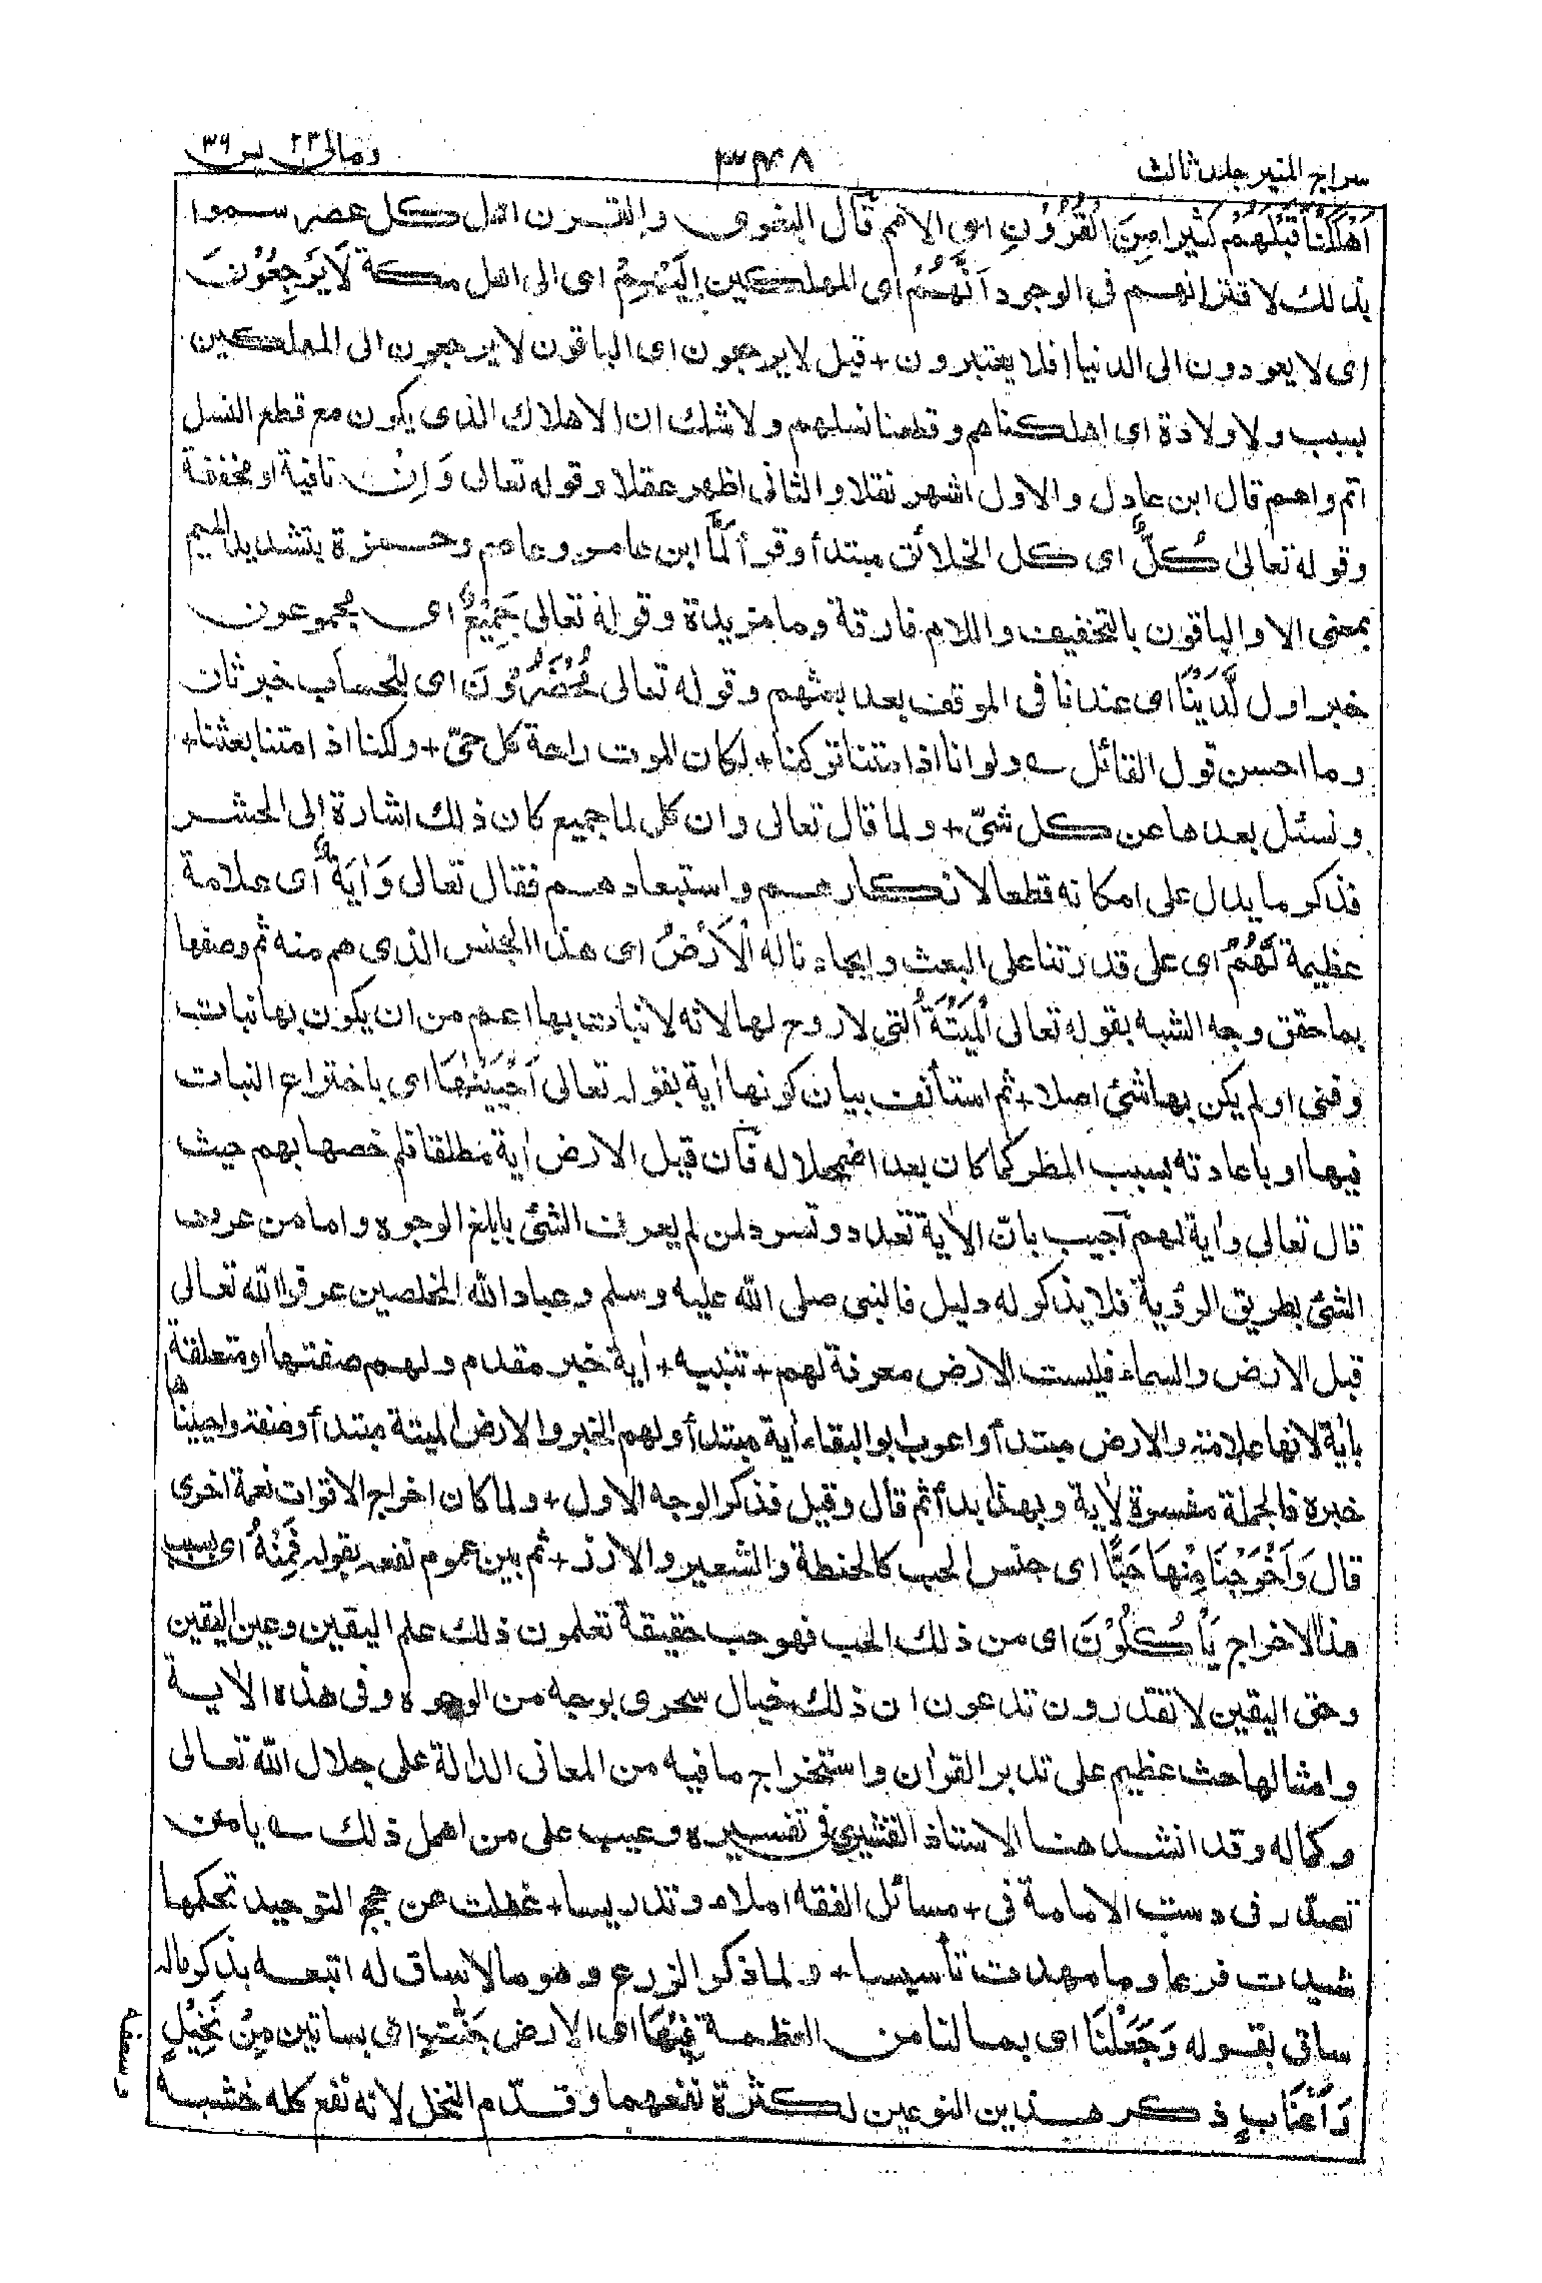 سراج المنير جلد ثالث
٣٤٨
ومالى ٢٣ يس ٣٦
اَهْلَكْنَا قَبْلَهُمْ كثيرا مِنَ الْقُرُوْنِ اى الامم قال البغوى والقرن اهل كل عصر سموا
بذلك لاقترانهم فى الوجود اَنَّهُمْ اى المهلكين اِلَيْهِمْ اى الى اهل مكة لَا يَرْجِعُوْنَ
اى لا يعودون الى الدنيا افلا يعتبرون + قيل لا يرجعون اى الباقون لا يرجعون الى المهلكين
بسبب ولا ولادة اى اهلكناهم وقطعنا نسلهم ولا شك ان الاهلاك الذى يكون مع قطع النسل
اتم واهم قال ابن عادل والاول اشهر نقلا والثانى اظهر عقلا وقوله تعالى وَاِنْ نافية او مخففة
وقوله تعالىٰ كُلٌّ اى كل الخلائق مبتدأ وقرأ لَمَّا ابن عامر وعاصم وحمزة بتشديد الميم
بمعنى الا والباقون بالتخفيف واللام فارقة وما مزيدة وقوله تعالى جَمِيْعٌ اى مجموعون
خبر اول لَّدَيْنَا اى عندنا فى الموقف بعد بعثهم وقوله تعالى مُحْضَرُوْنَ اى للحساب خبر ثان
وما احسن قول القائل ے ولو انا اذا متنا تركنا + لكان الموت راحة كل حىّ + ولكنا اذا متنا بعثنا +
ونسئل بعدها عن كل شىّ + ولما قال تعالى وان كل لما جميع كان ذلك اشارة الى الحشر
فذكر ما يدل على امكانه قطعا لانكارهم واستبعادهم فقال تعالى وَاٰيَةٌ اى علامة
عظيمة لَّهُمُ اى على قدرتنا على البعث وايجادنا له الْاَرْضُ اى هذا الجنس الذى هم منه ثم وصفها
بما حقق وجه الشبه بقوله تعالى الْمَيْتَةُ التى لا روح لها لانه لا نبات بها اعم من ان يكون بها نبات
وفنى او لم يكن بها شئ اصلا + ثم استأنف بيان كونها اٰية بقوله تعالى اَحْيَيْنٰهَا اى باختراع النبات
فيها او باعادته بسبب المطر كما كان بعد اضمحلاله فان قيل الارض اٰية مطلقا فلم خصها بهم حيث
قال تعالى واٰية لهم اجيب بان الاٰية تعدد وتسرد لمن لم يعرف الشئ بابلغ الوجوه واما من عرف
الشئ بطريق الرؤية فلا يذكر له دليل فالنبى صلى الله عليه وسلم وعباد الله المخلصين عرفوا الله تعالى
قبل الارض والسماء فليست الارض معرفة لهم + تنبيه + اٰية خبر مقدم ولهم صفتها او متعلقة
باٰية لانها علامة والارض مبتدأ واعرب ابو البقاء اٰية مبتدأ ولهم الخبر والارض الميتة مبتدأ وصفة واحييناها
خبره فالجملة مفسرة لاٰية وبهذا بدأ ثم قال وقيل فذكر الوجه الاول + ولما كان اخراج الاقوات نعمة اخرى
قال وَاَخْرَجْنَا مِنْهَا حَبًّا اى جنس الحب كالحنطة والشعير والارز + ثم بين عموم نفعه بقوله فَمِنْهُ اى بسبب
هذا الاخراج يَأْكُلُوْنَ اى من ذلك الحب فهو حب حقيقة تعلمون ذلك علم اليقين وعين اليقين
وحق اليقين لا تقدرون تدعون ان ذلك خيال سحرى بوجه من الوجوه وفى هذه الاٰية
وامثالها حث عظيم على تدبر القراٰن واستخراج ما فيه من المعانى الدالة على جلال الله تعالى
وكماله وقد انشد هنا الاستاذ القشيرى فى تفسيره وعيب على من اهمل ذلك ے يا من
تصدّر فى دست الامامة فى + مسائل الفقه املاء وتدريسا + غفلت عن حجج التوحيد تحكمها
شيدت فرعا وما مهدت تأسيسا + ولما ذكر الزرع وهو ما لا ساق له اتبعه بذكر ما له
ساق بقوله وَجَعَلْنَا اى بما لنا من العظمة فِيْهَا اى الارض جَنّٰتٍ اى بساتين مِنْ نَّخِيْلٍ
وَّاَعْنَابٍ ذكر هذين النوعين لكثرة نفعهما وقدّم النخل لانه نفع كله خشبه
وسعفه